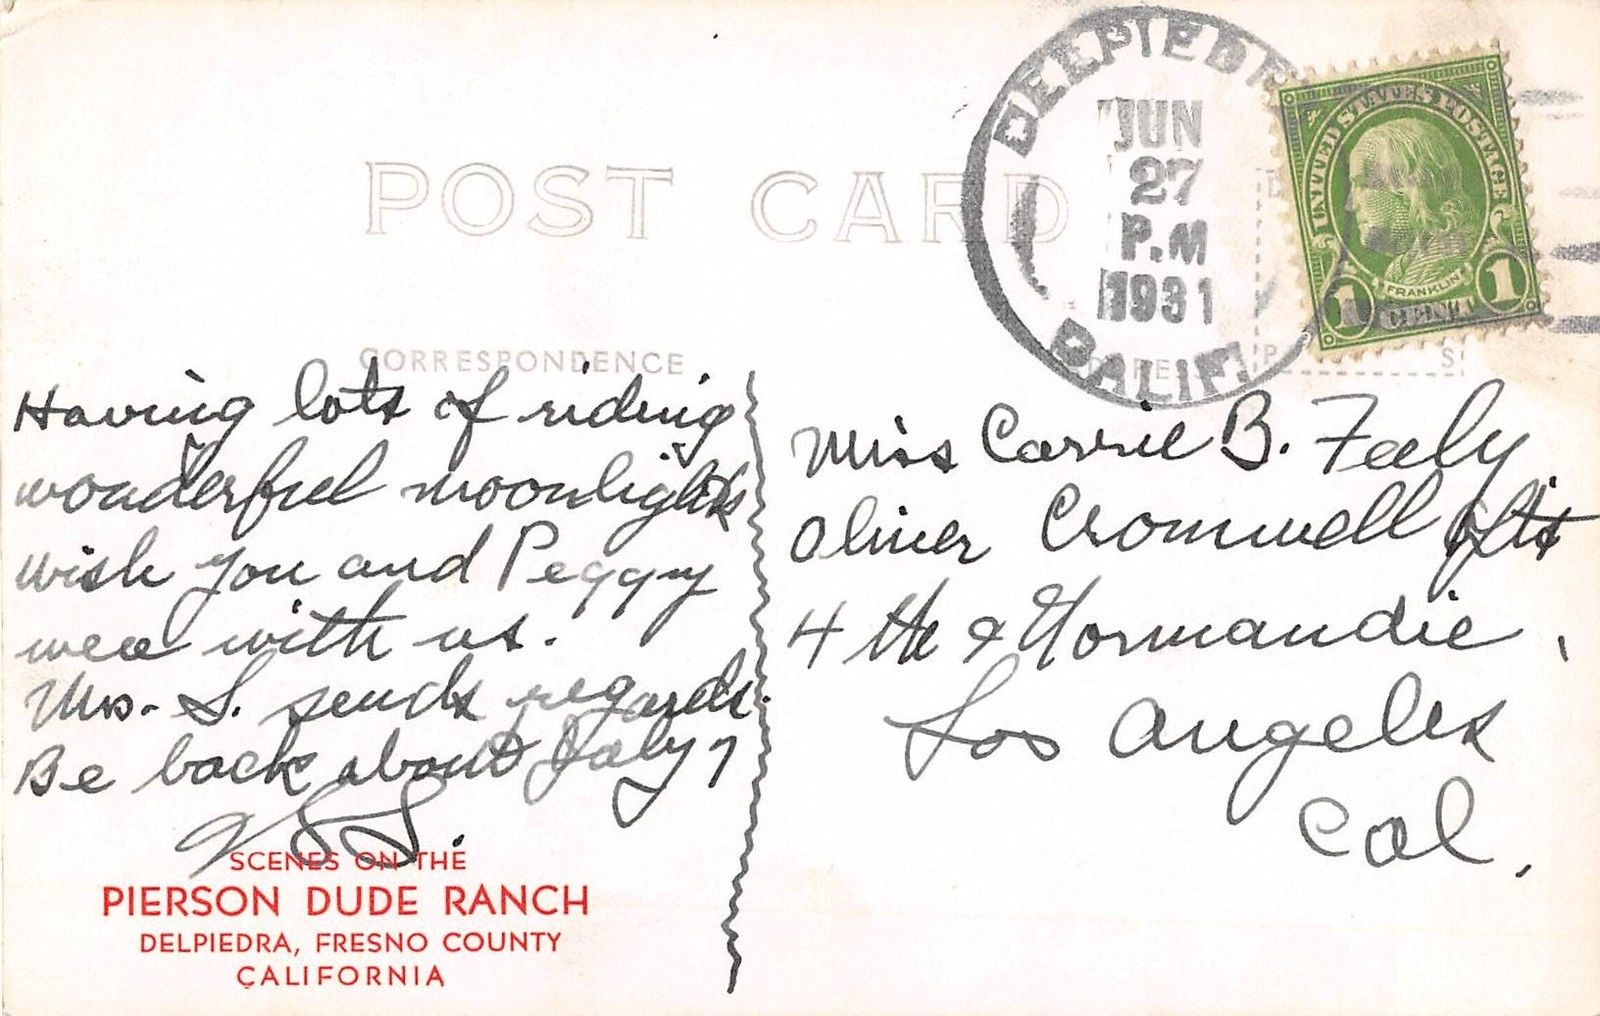 POST CARD
DELPIEDRA
JUN
27
P.M
1931
CALIF.
UNITED STATES POSTAGE
FRANKLIN
1 CENT 1
CORRESPONDENCE
Having lots of riding
wonderful moonlights
wish you and Peggy
were with us.
Mrs. S. sends regards.
Be back about July 7
Miss Carrie B. Feely
Oliver Cromwell Apts
4 the & Normandie,
Los Angeles
Cal.
SCENES ON THE
PIERSON DUDE RANCH
DELPIEDRA, FRESNO COUNTY
CALIFORNIA